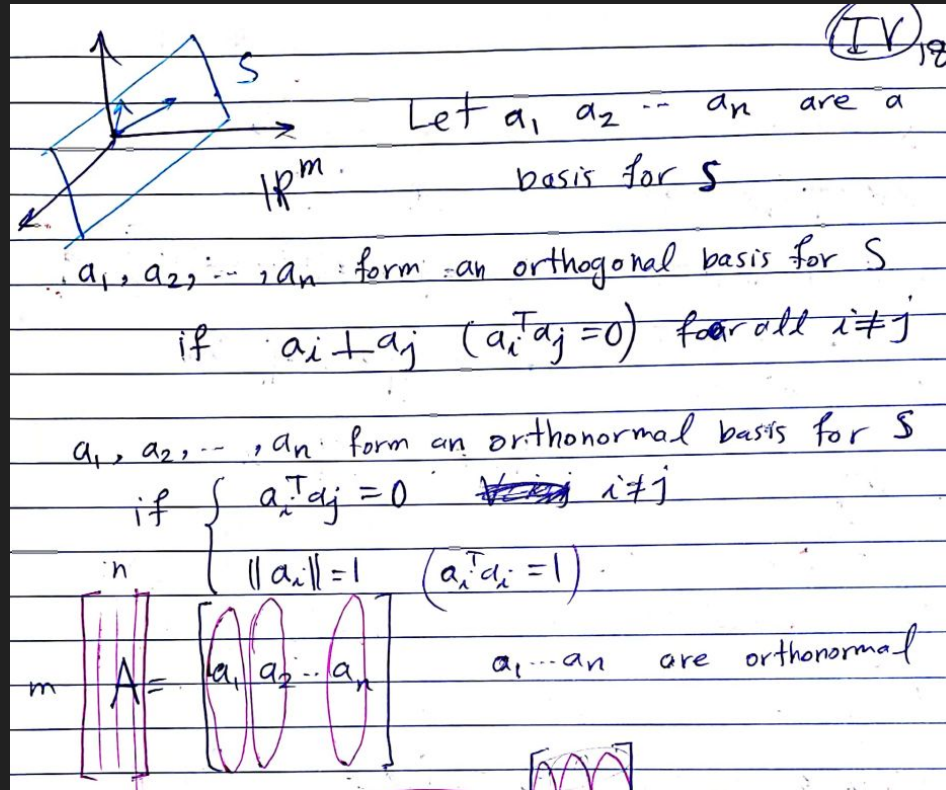 IV
S
Let a₁ a₂ -- aₙ are a
ℝᵐ. basis for S
a₁, a₂, --, aₙ form an orthogonal basis for S
if aᵢ ⊥ aⱼ (aᵢᵀaⱼ = 0) for all i ≠ j
a₁, a₂, --, aₙ form an orthonormal basis for S
if { aᵢᵀaⱼ = 0 i ≠ j
n ‖aᵢ‖ = 1 (aᵢᵀaᵢ = 1)
m A = [a₁ a₂ .. aₙ] a₁ ... aₙ are orthonormal